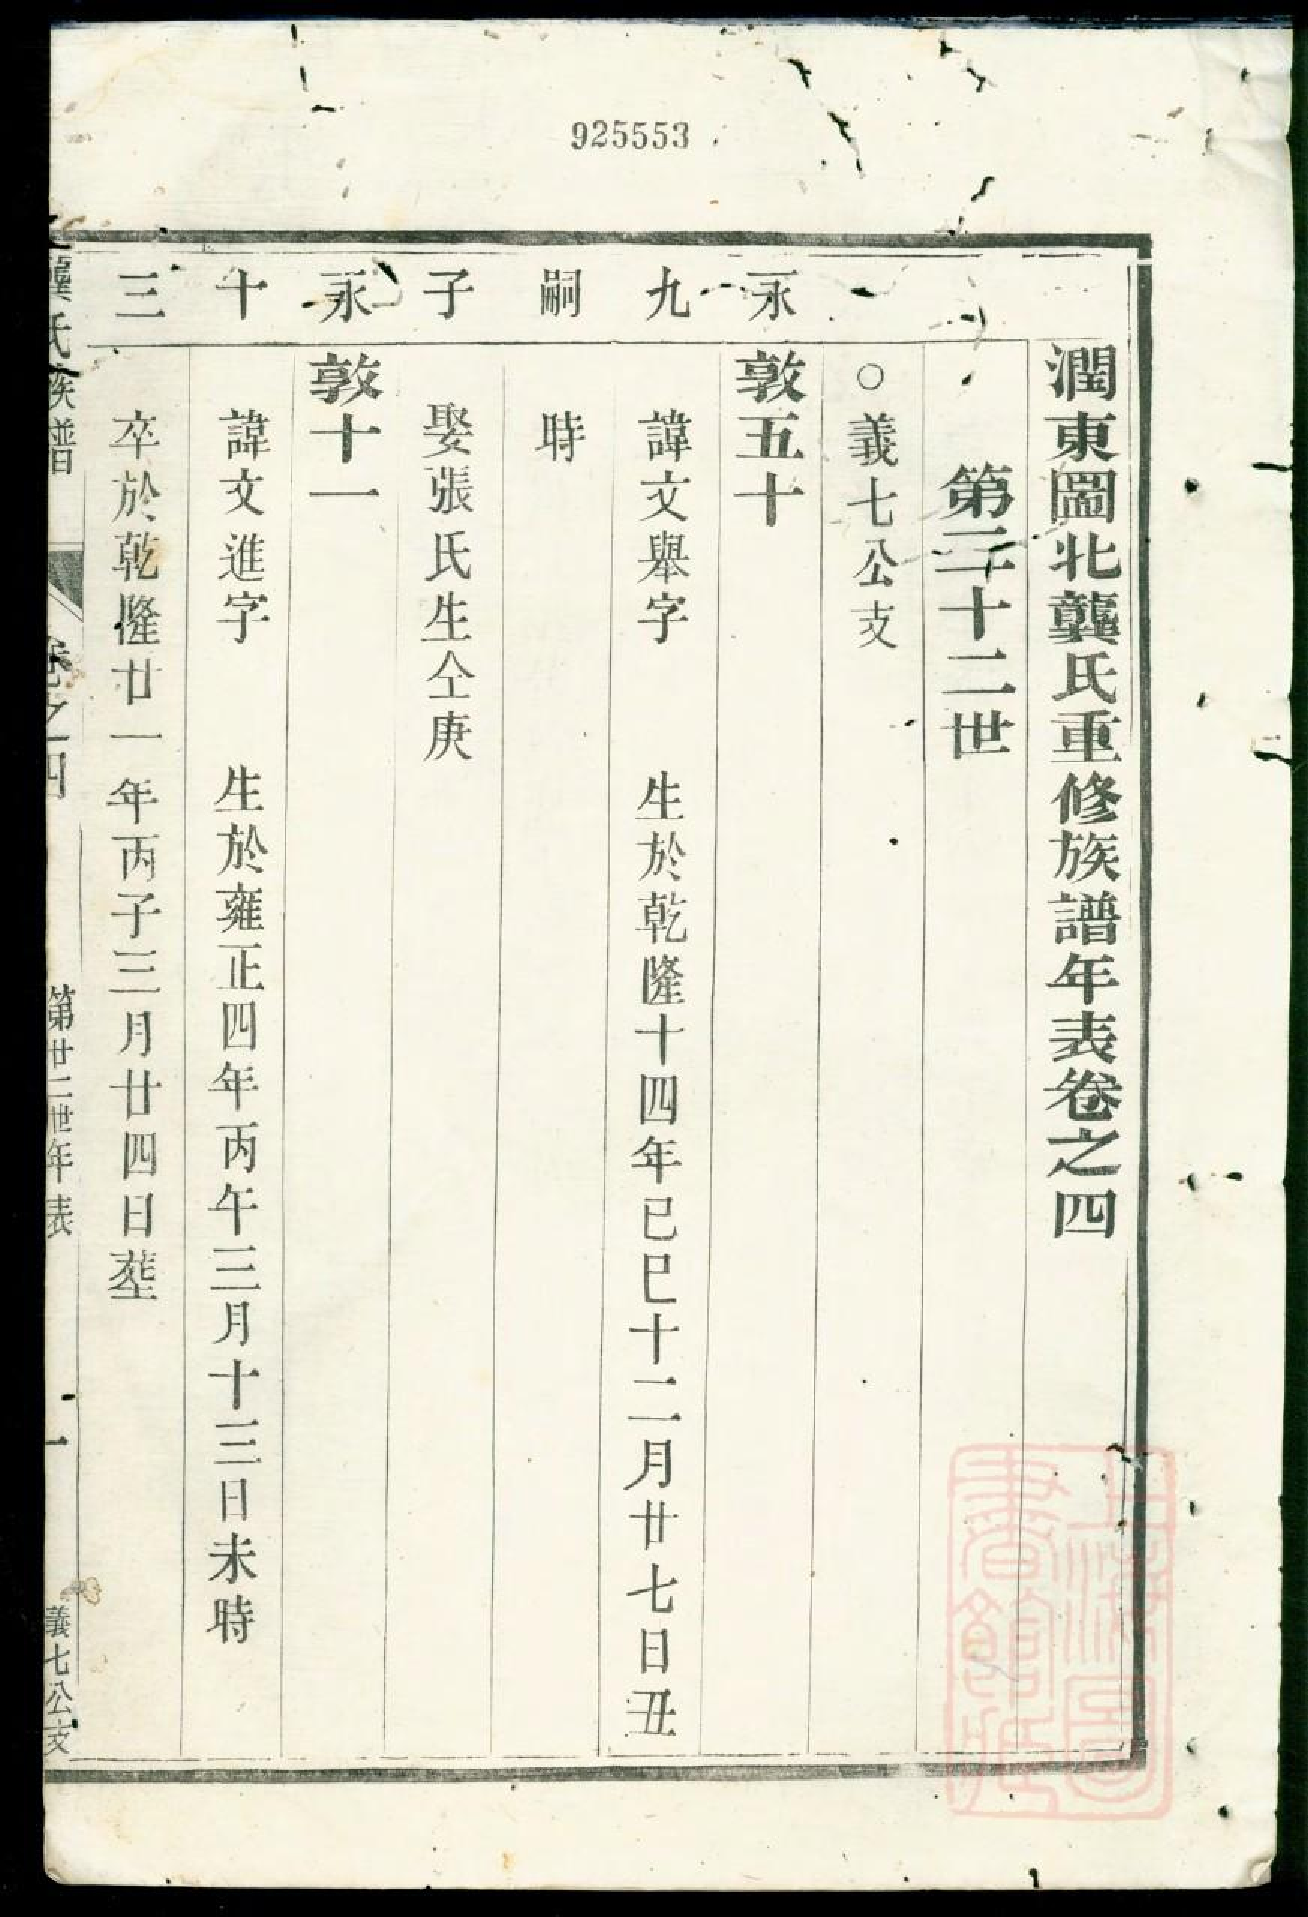 925553
潤東圌北龔氏重修族譜年表卷之四
第二十二世
○義七公支
永 敦五十
九 諱文舉字 生於乾隆十四年己巳十二月廿七日丑
嗣 時
子 娶張氏生仝庚
永 敦十一
十 諱文進字 生於雍正四年丙午三月十三日未時
三 卒於乾隆廿一年丙子三月廿四日塟
龔氏族譜 卷之四 第廿二世年表 一 義七公支
上海圖書館藏